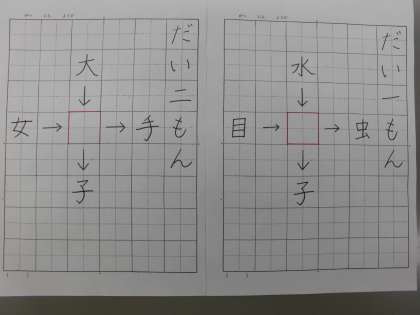 だい一もん
水
↓
目→□→虫
↓
子
だい二もん
大
↓
女→□→手
↓
子